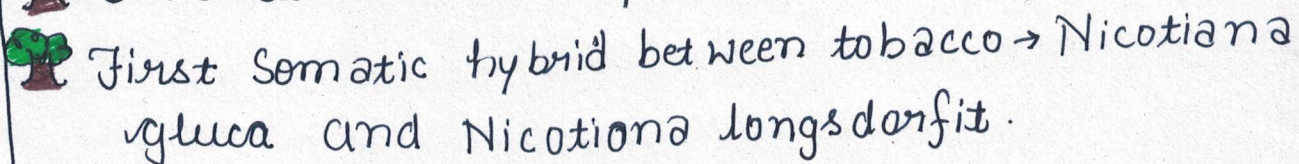 First Somatic hybrid between tobacco → Nicotiana
gluca and Nicotiona longsdorfit.